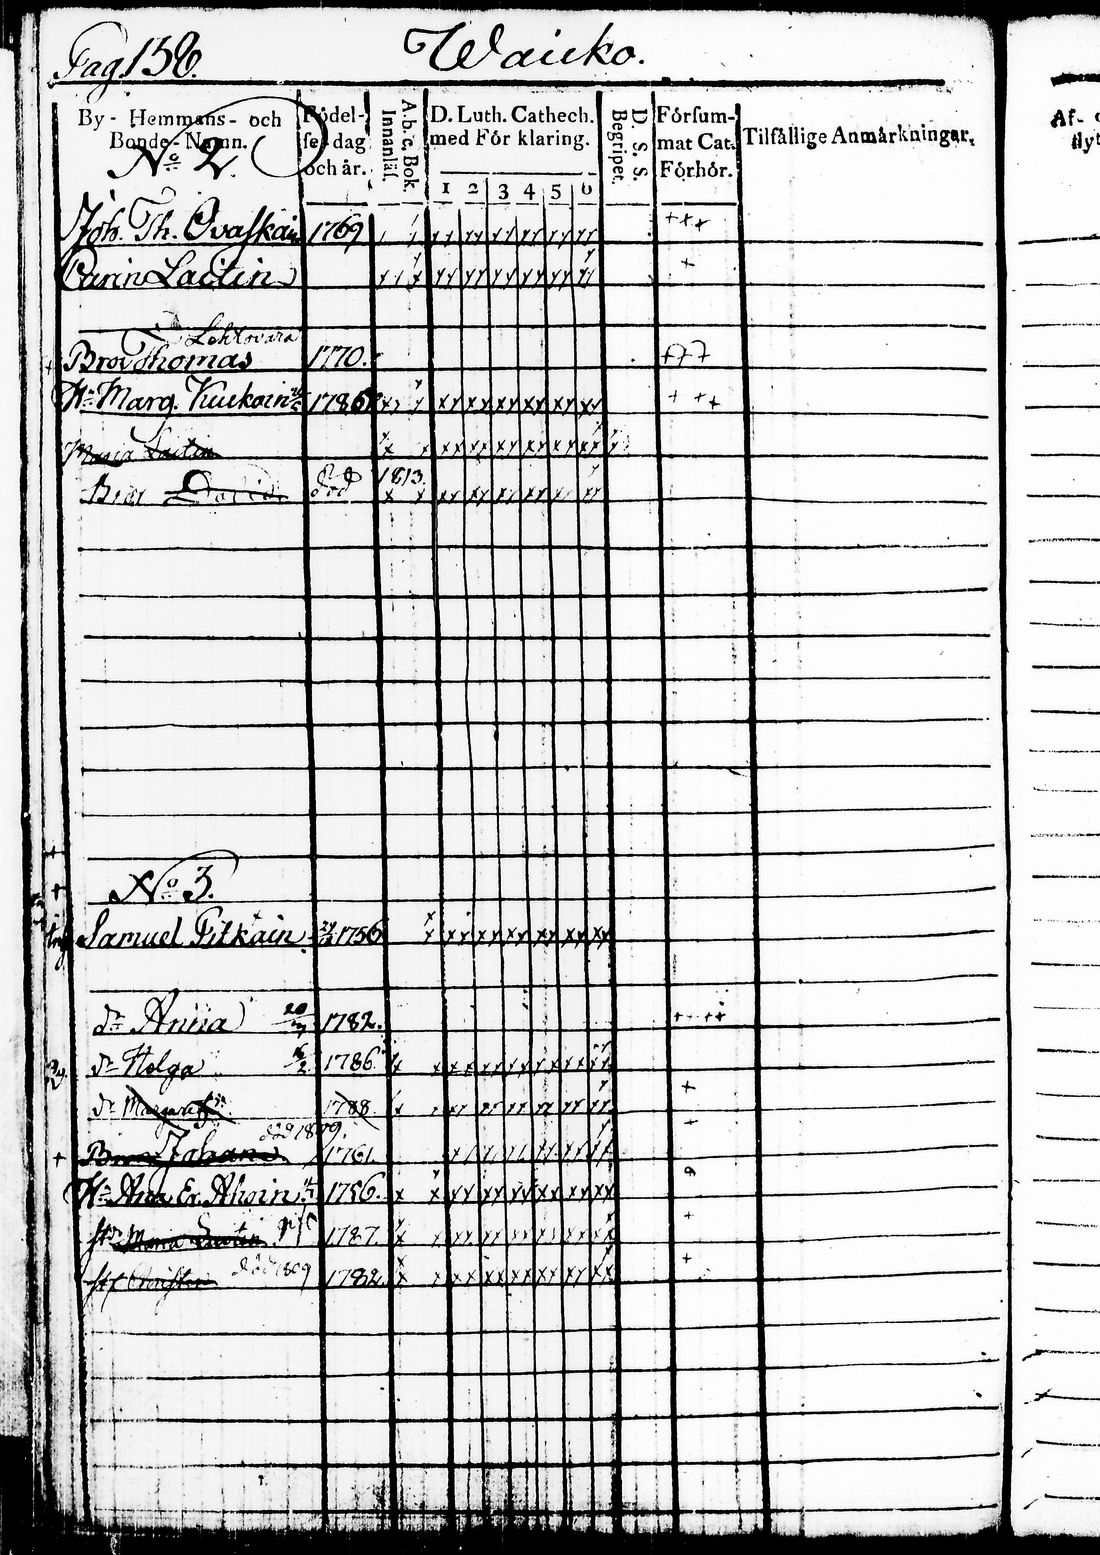 Pag. 158.
Waiuko.
By- Hemmans- och Bonde-Namn.
Fódel-se-dag och år.
Innanläs.
A.b.c. Bok.
D. Luth. Cathech. med Fór klaring.
1 2 3 4 5 6
D. S. S. Begripet.
Fórsum-mat Cat. Fórhór.
Tilfällige Anmärkningar.
Af- o
flyt
No 2.
Joh. Th. Ovaskain 1769 +++
Carin Laitin +
Lehtovara
+ Brov Thomas 1770. +++
Hu Marg. Kuukoin 1786 + ++
Maria Laitin
Bror död 1813.
No 3.
Samuel Pitkäin 1756
dr Anna 20 1782.
dr Helga 1786.
dr Margareta 1788
död 1809.
+ Bror Johan 1761.
Hu Anna Er. Ahoin 1756.
Maria Laitin gift 1787.
Christin död 1809 1782.